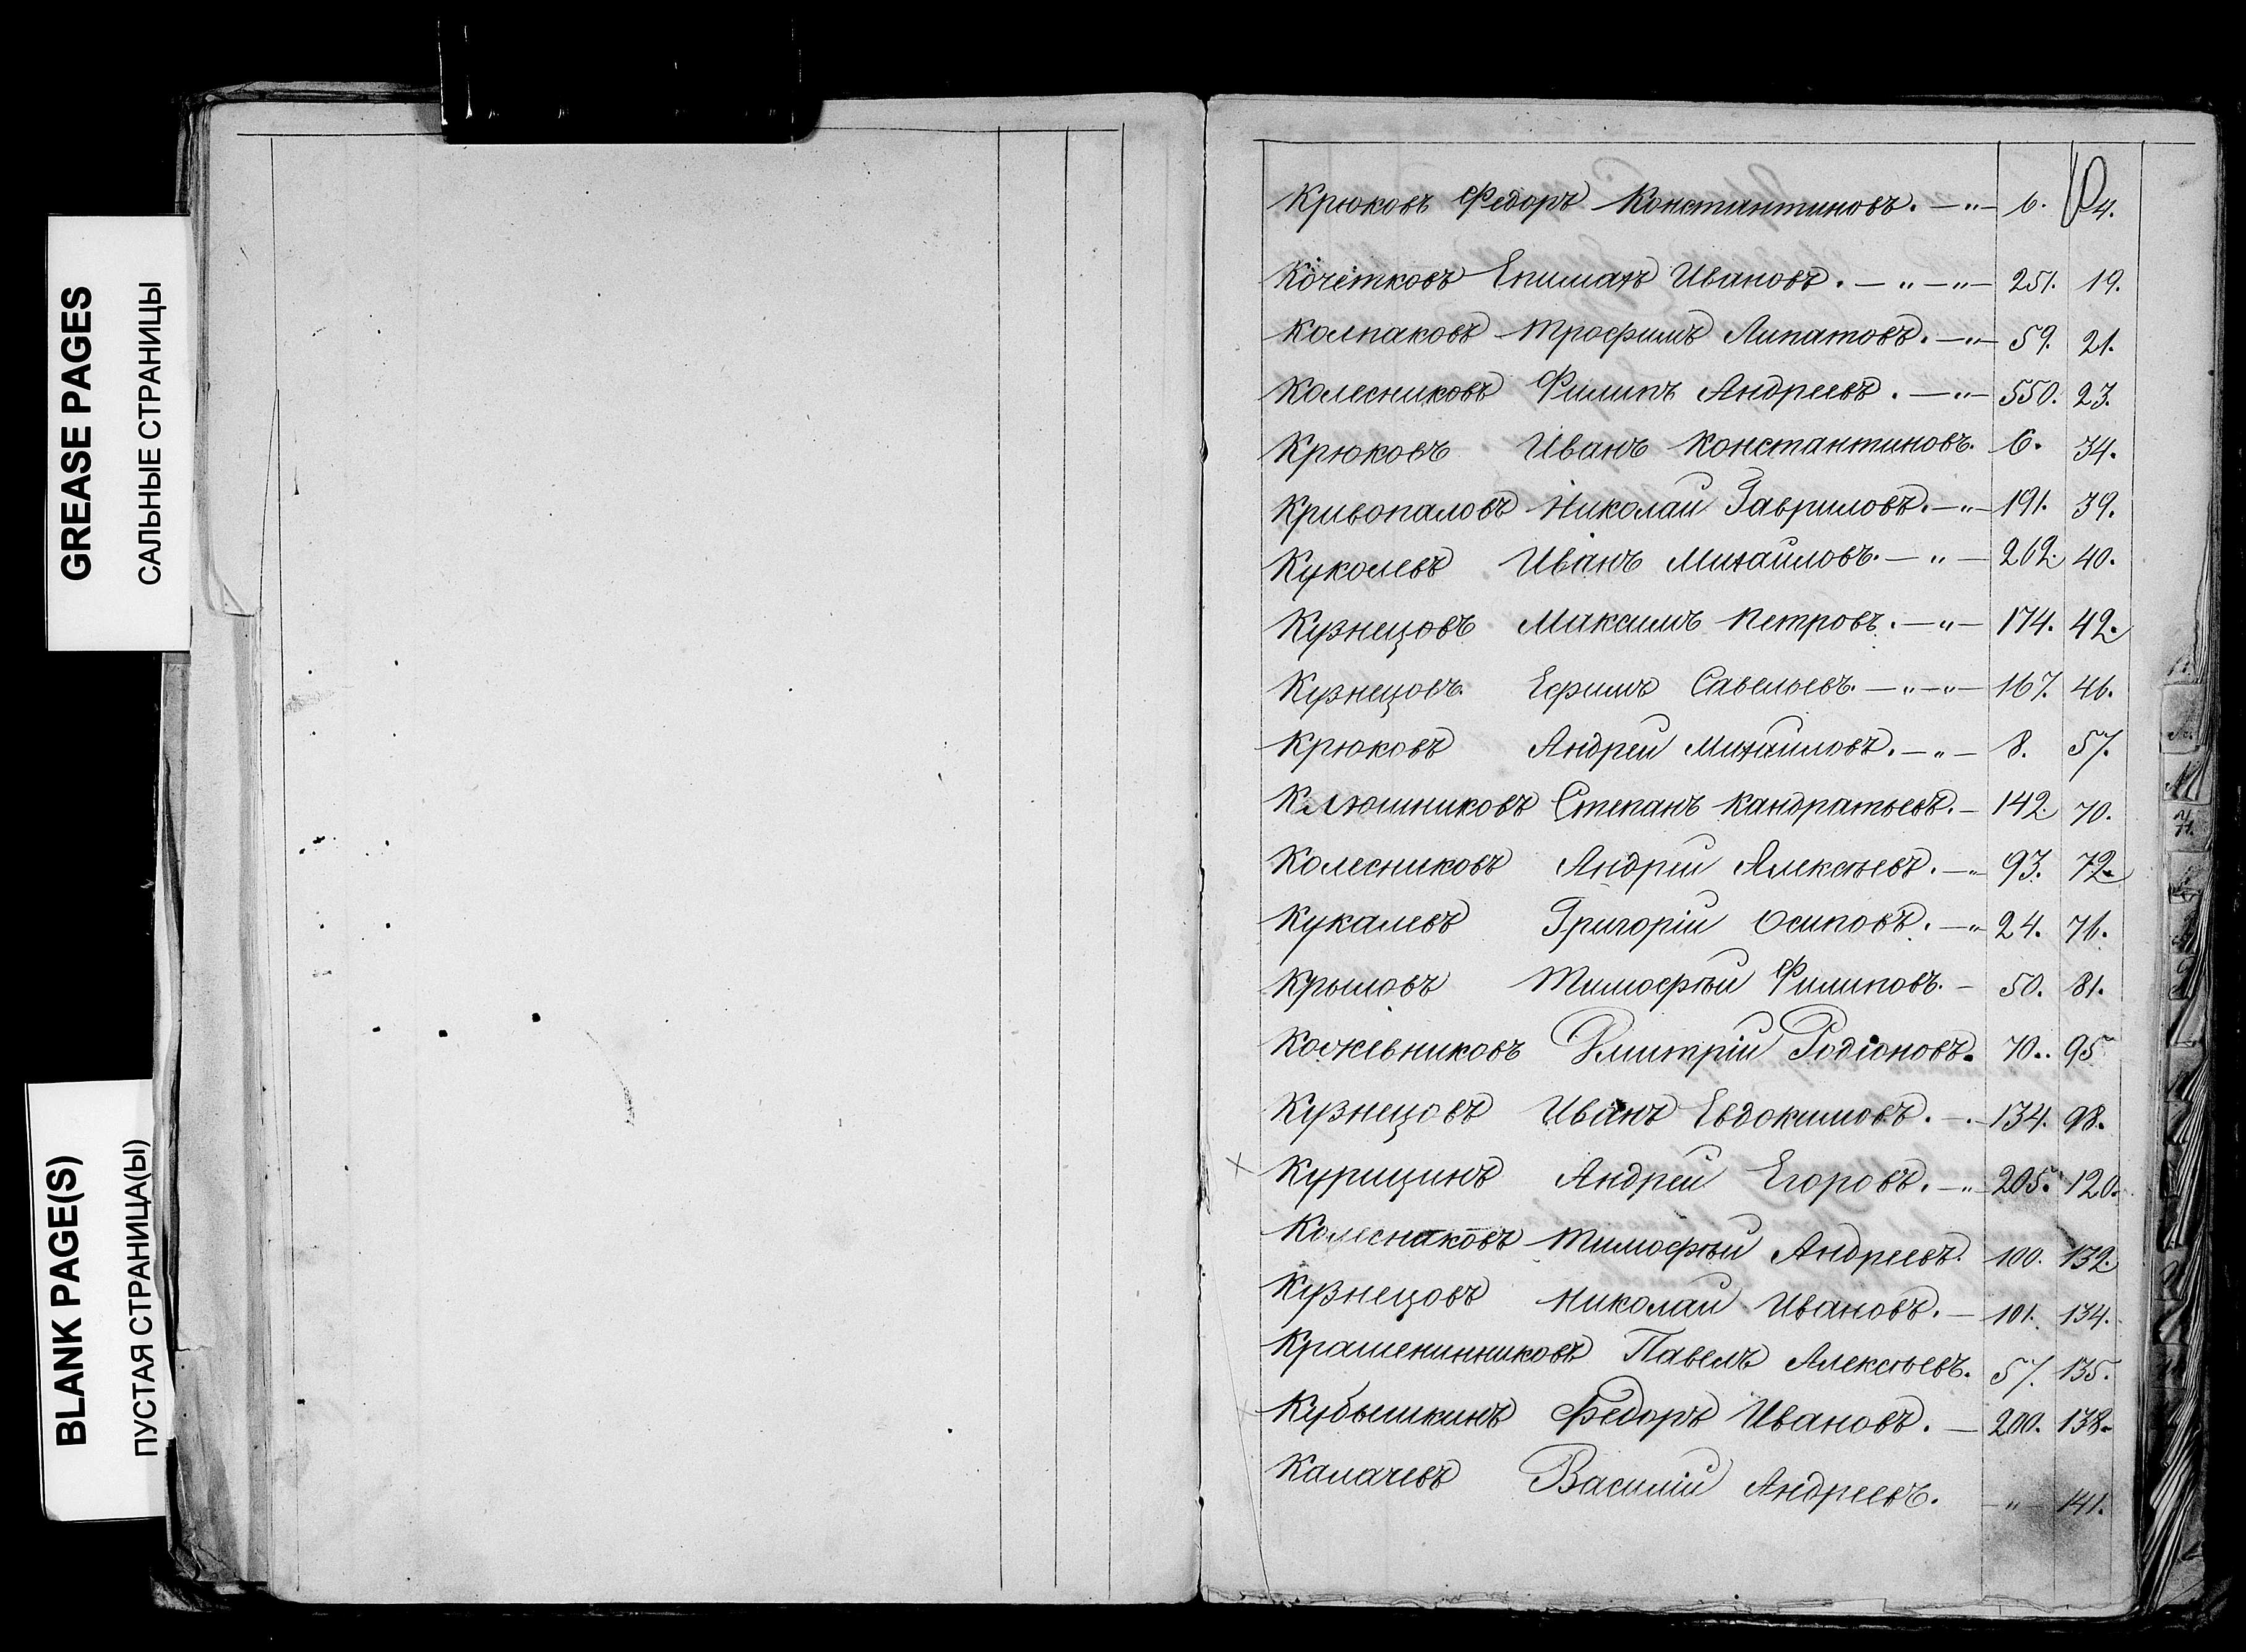 GREASE PAGES
САЛЬНЫЕ СТРАНИЦЫ
BLANK PAGE(S)
ПУСТАЯ СТРАНИЦА(Ы)
Крюковъ Федоръ Константиновъ. — „ — 6. 4.
Кочетковъ Епиматъ Ивановъ. — „ — „ — 251. 19.
Колпаковъ Трофимъ Липатовъ. — „ — 59. 21.
Колесниковъ Филипъ Андреевъ. — „ — 550. 23.
Крюковъ Иванъ Константиновъ. 6. 34.
Кривопаловъ Николай Гавриловъ. — „ — 191. 39.
Куколевъ Иванъ Михайловъ. — „ — 262. 40.
Кузнецовъ Максимъ Петровъ. — „ — 174. 42.
Кузнецовъ. Ефимъ Савельевъ. — „ — „ — 167. 46.
Крюковъ Андрей Михайловъ. — „ — 8. 57.
Клюшниковъ Степанъ Кандратьевъ. — 142. 70.
Колесниковъ Андрей Алексѣевъ. — „ 93. 72.
Кукалевъ Григорій Осиповъ. — „ 24. 76.
Крыловъ Тимофѣй Филиповъ. — 50. 81.
Кожевниковъ Дмитрій Родіоновъ. 70.. 95
Кузнецовъ Иванъ Евдокимовъ. — . — 134. 98.
Курицинъ Андрей Егоровъ. — „ — 205. 120.
Колесниковъ Тимофѣй Андреевъ. 100. 132.
Кузнецовъ Николай Ивановъ. — 101. 134.
Крашенинниковъ Павелъ Алексѣевъ. 57. 135.
Кубышкинъ Федоръ Ивановъ. — 200. 138.
Калачевъ Василій Андреевъ. — „ — 141.